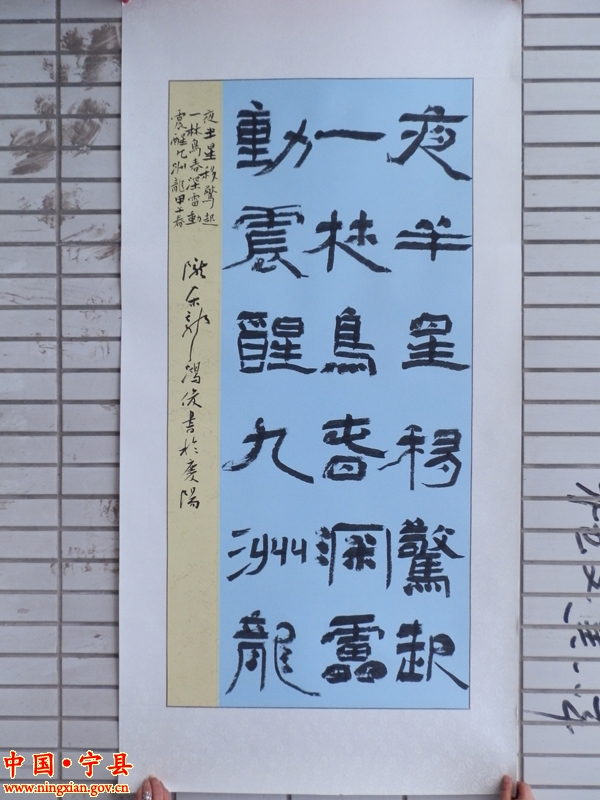 夜半星移驚起
一林鳥春深雷
動震醒九洲龍
夜半星移驚起
一林鳥春深雷動
震醒九洲龍甲午春
隴東
書於慶陽
中国·宁县
www.ningxian.gov.cn